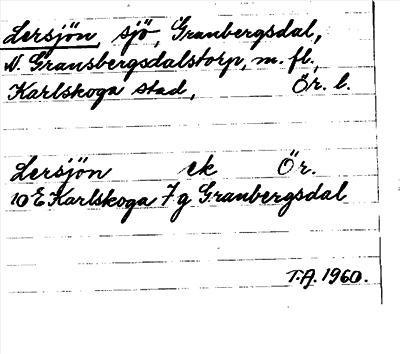 Lersjön, sjö, Granbergsdal,
N. Gransbergsdalstorp, m. fl.,
Karlskoga stad, Ör. l.
Lersjön ek Ör.
10 E Karlskoga 7 g Granbergsdal
T.A. 1960.